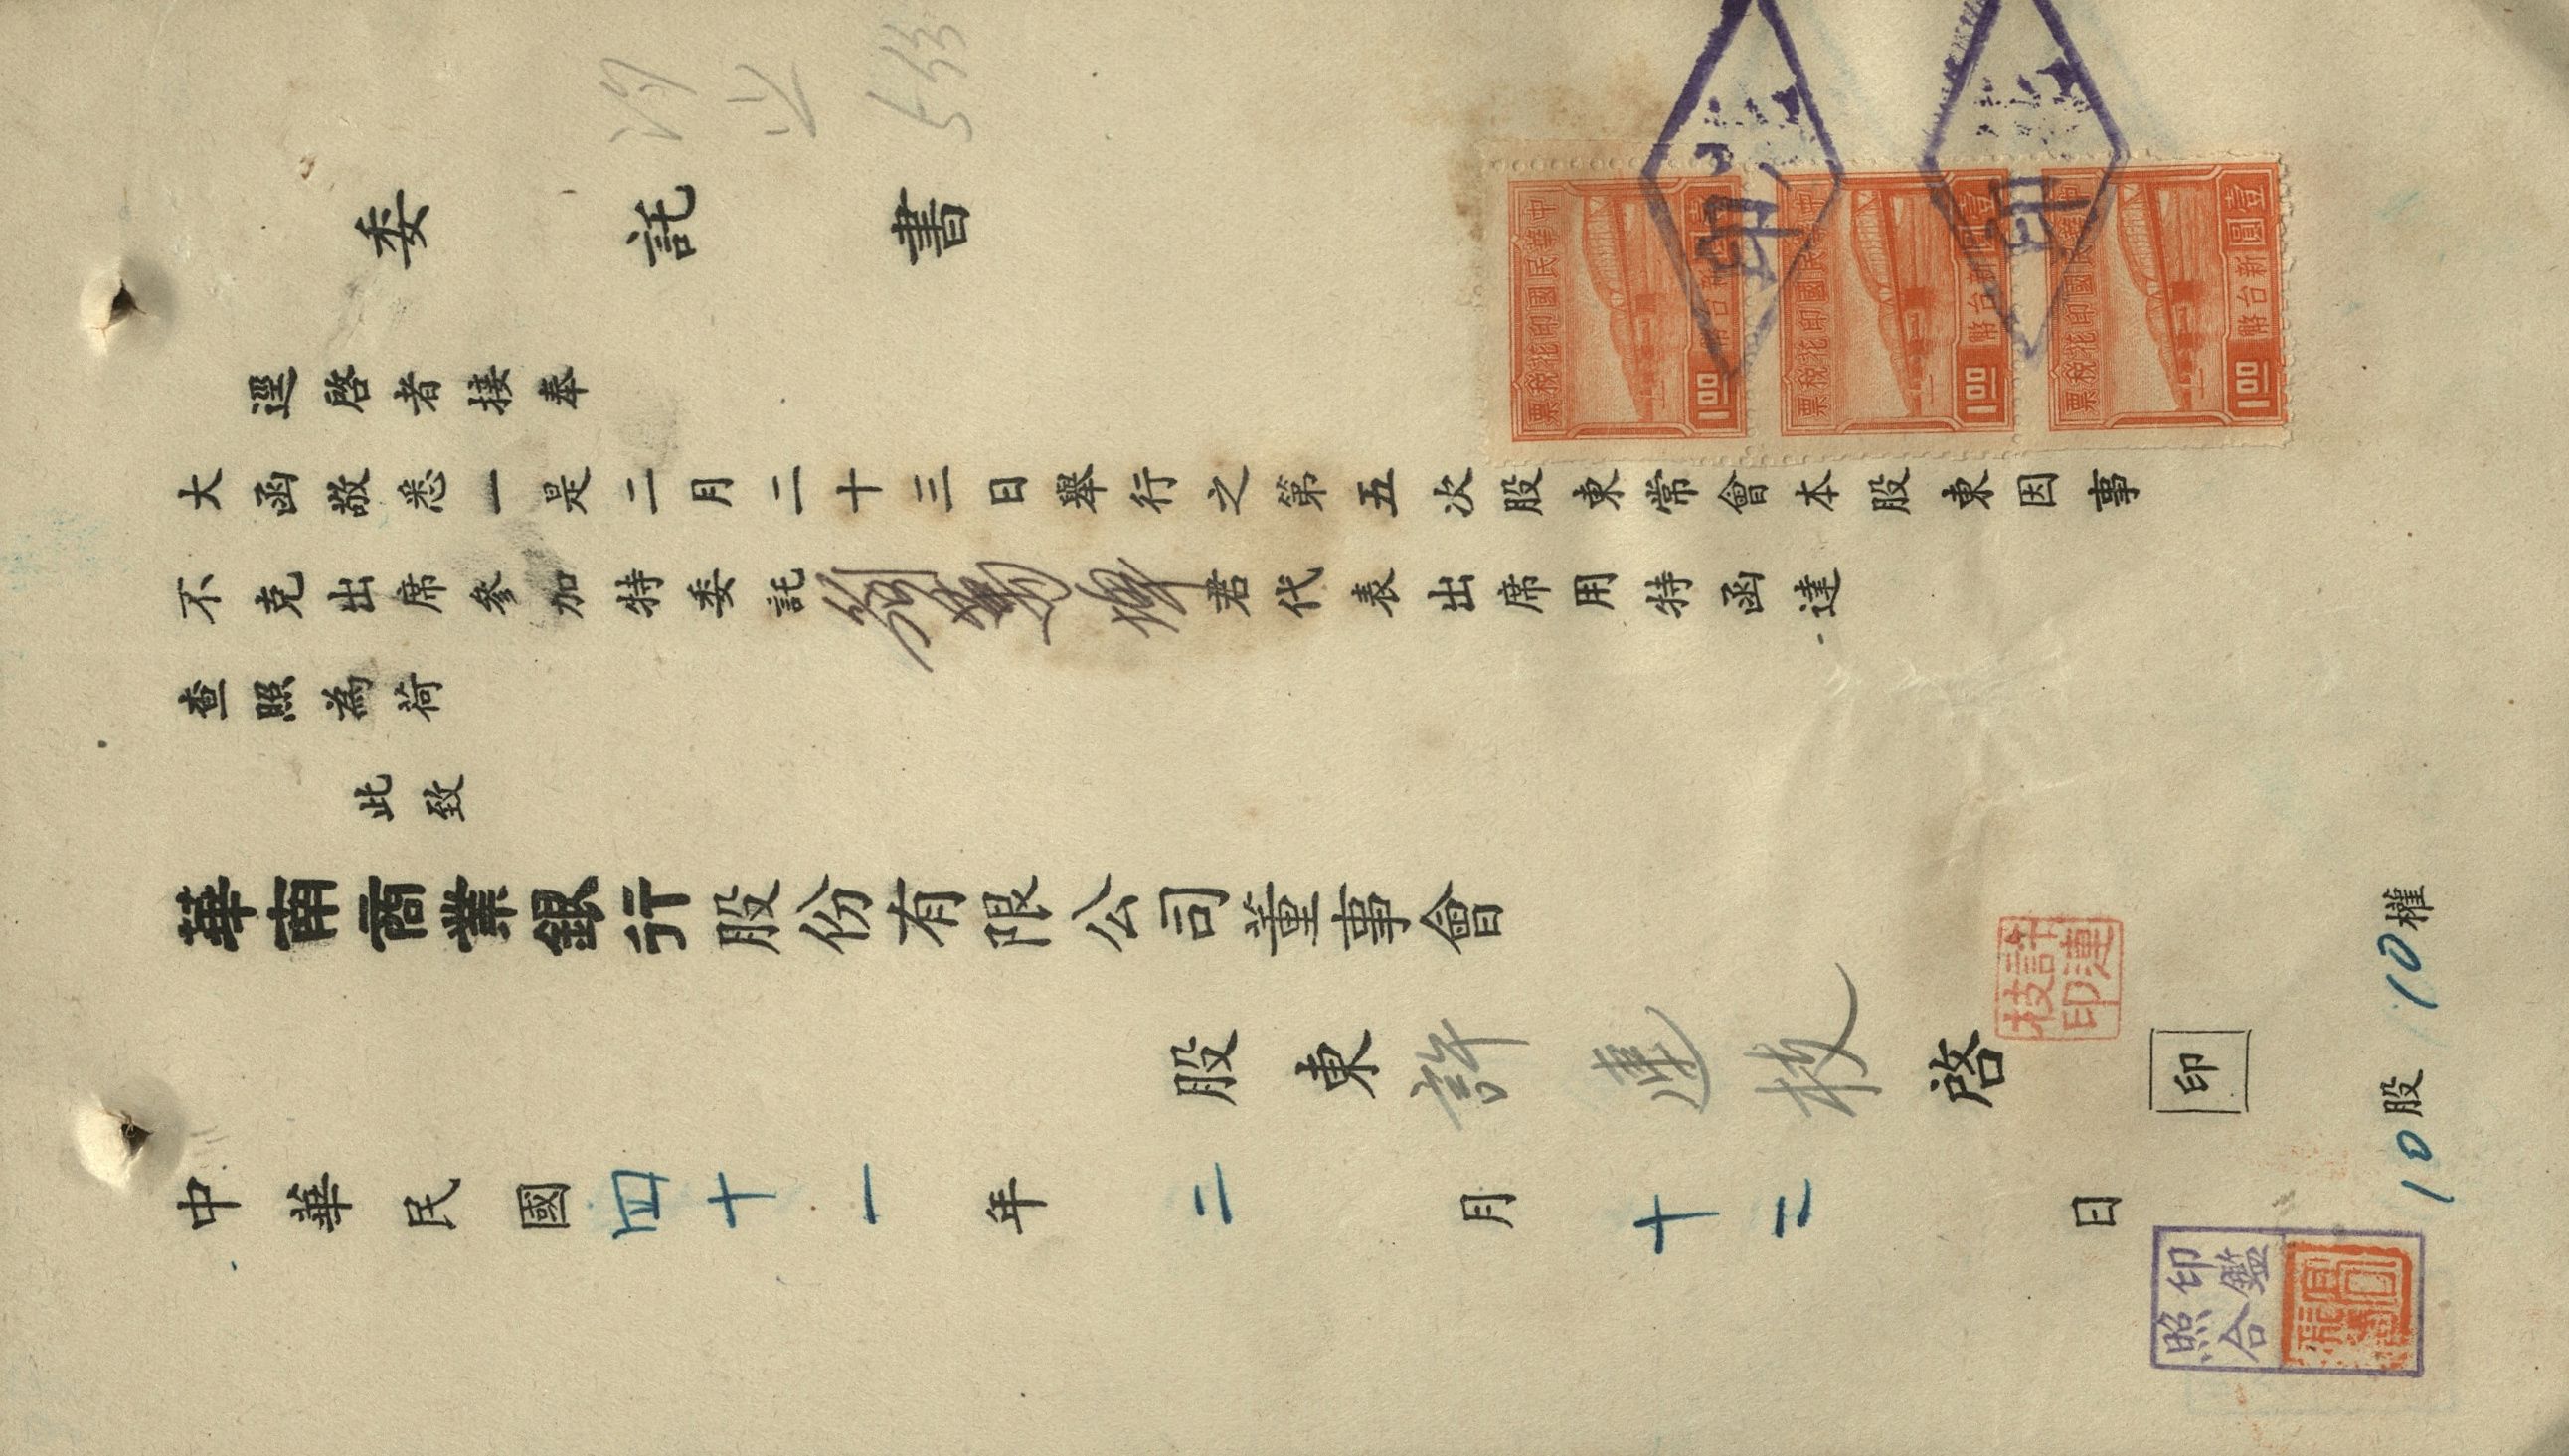 委託書
逕啓者接奉
大函敬悉一是二月二十三日舉行之第五次股東常會本股東因事
不克出席參加特委託君代表出席用特函達
查照為荷
此致
華南商業銀行股份有限公司董事會
股東許連枝啓
印
許連枝印
中華民國四十一年二月十二日
10股10權
印鑑照合
中華民國印花稅票
壹圓新台幣
1.00
中華民國印花稅票
壹圓新台幣
1.00
中華民國印花稅票
壹圓新台幣
1.00
印
印